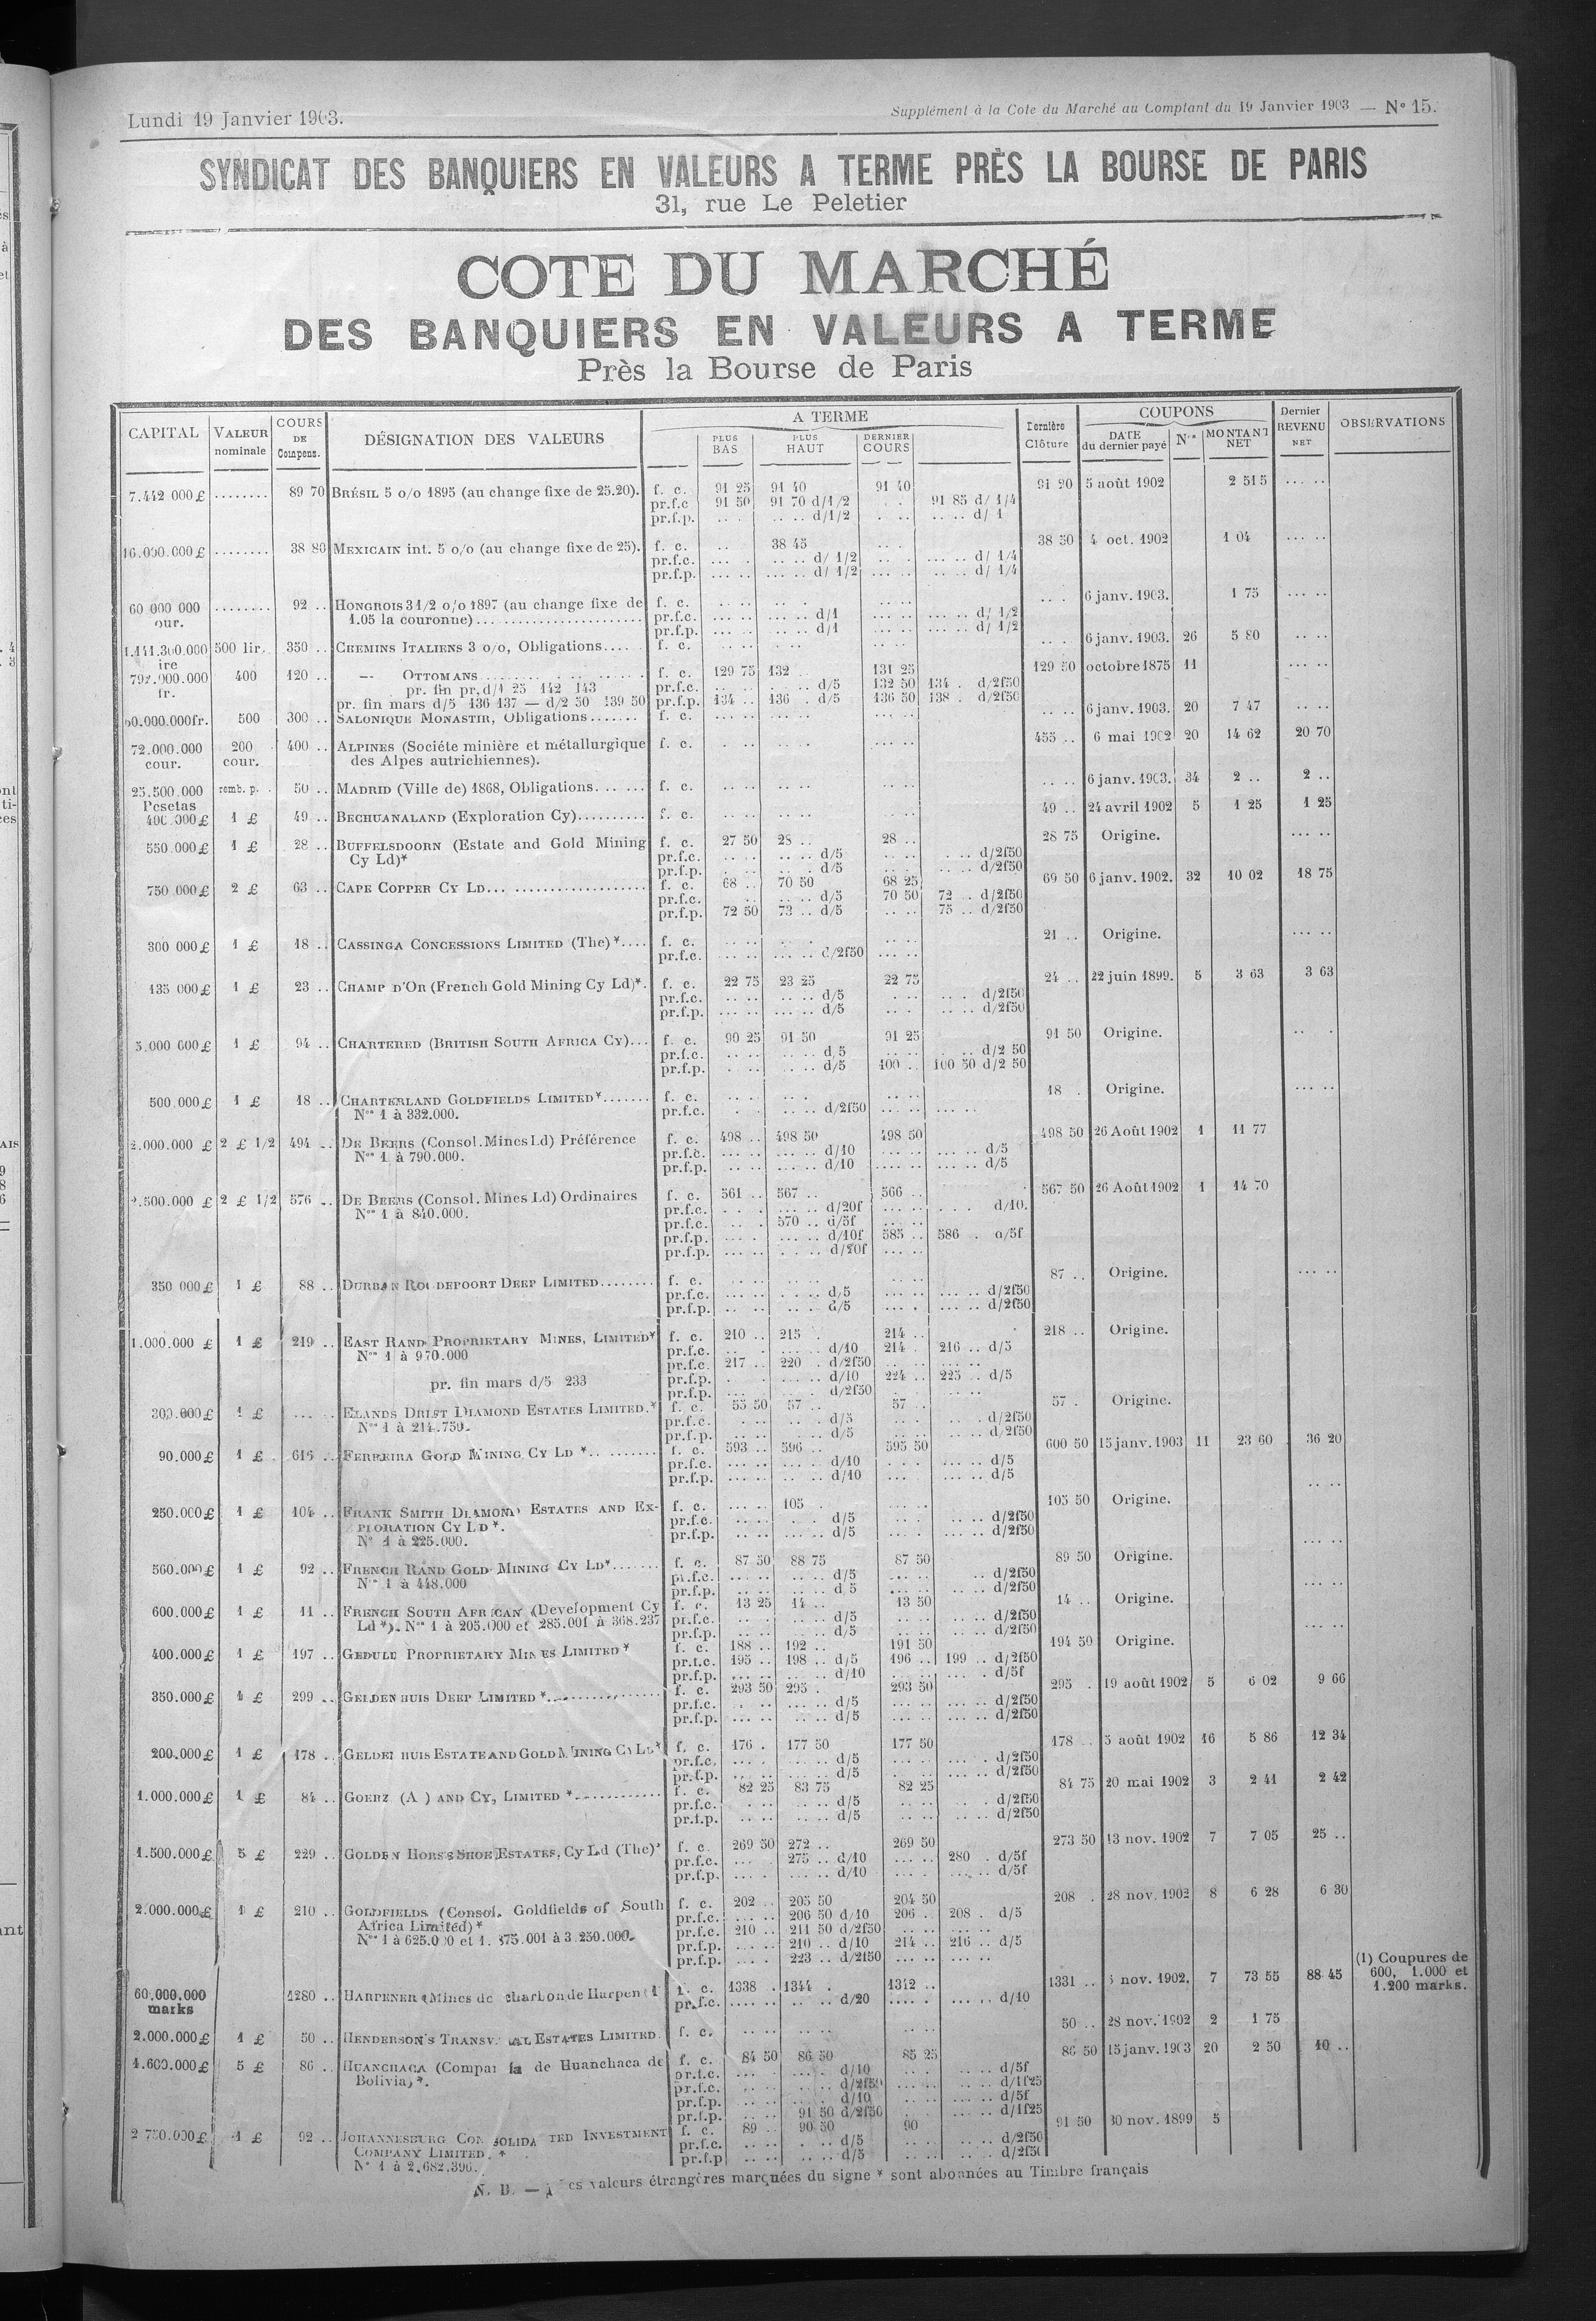 Lundi 19 Janvier 1903.
Supplément à la Cote du Marché au Comptant du 19 Janvier 1903 — N° 15.
SYNDICAT DES BANQUIERS EN VALEURS A TERME PRÈS LA BOURSE DE PARIS
31, rue Le Peletier
COTE DU MARCHÉ
DES BANQUIERS EN VALEURS A TERME
Près la Bourse de Paris
CAPITAL VALEUR nominale COURS DE Compens. DÉSIGNATION DES VALEURS A TERME PLUS BAS PLUS HAUT DERNIER COURS Dernière Clôture COUPONS DATE du dernier payé N°s MONTANT NET Dernier REVENU NET OBSERVATIONS
7.442 000 £ ........ 89 70 BRÉSIL 5 o/o 1895 (au change fixe de 25.20). f. c. 91 25 91 40 91 40 91 20 5 août 1902 2 515 ... ..
pr.f.c 91 50 91 70 d/1/2 91 85 d/ 1/4
pr.f.p. d/1/2 d/ 1
16.000.000 £ ........ 38 80 MEXICAIN int. 5 o/o (au change fixe de 25). f. c. 38 45 38 50 4 oct. 1902 1 04
pr.f.c. d/ 1/2 d/ 1/4
pr.f.p. d/ 1/2 d/ 1/4
60 000 000 cour. ........ 92 .. HONGROIS 3 1/2 o/o 1897 (au change fixe de f. c. 6 janv. 1903. 1 75
1.05 la couronne) pr.f.c. d/1 d/ 1/2
pr.f.p. d/1 d/ 1/2
500 lir. 350 .. CHEMINS ITALIENS 3 o/o, Obligations.... f. c. 6 janv. 1903. 26 5 80
792.000.000 fr. 400 120 .. — OTTOMANS f. c. 129 75 132 131 25 129 50 octobre 1875 11
pr. fin pr. d/1 25 142 143 pr.f.c. d/5 132 50 134 . d/2f50
pr. fin mars d/5 136 137 — d/2 50 139 50 pr.f.p. 134 .. 136 . d/5 136 50 138 . d/2f50
500 300 .. SALONIQUE MONASTIR, Obligations....... f. c. 6 janv. 1903. 20 7 47
72.000.000 cour. 200 cour. 400 .. ALPINES (Sociéte minière et métallurgique f. c. 455 .. 6 mai 1902 20 14 62 20 70
des Alpes autrichiennes).
25.500.000 Pesetas remb. p. 50 .. MADRID (Ville de) 1868, Obligations...... f. c. 6 janv. 1903. 34 2 .. 2 ..
400.000 £ 1 £ 49 .. BECHUANALAND (Exploration Cy).......... f. c. 49 .. 24 avril 1902 5 1 25 1 25
550.000 £ 1 £ 28 .. BUFFELSDOORN (Estate and Gold Mining f. c. 27 50 28 .. 28 .. 28 75 Origine.
Cy Ld)* pr.f.c. d/5 d/2f50
pr.f.p. d/5 d/2f50
750 000 £ 2 £ 63 .. CAPE COPPER CY LD... f. c. 68 .. 70 50 68 25 69 50 6 janv. 1902. 32 10 02 18 75
pr.f.c. d/5 70 50 72 .. d/2f50
pr.f.p. 72 50 73 .. d/5 75 .. d/2f50
300 000 £ 1 £ 18 .. CASSINGA CONCESSIONS LIMITED (The)*.... f. c. 21 .. Origine.
pr.f.c. d/2f50
135 000 £ 1 £ 23 .. CHAMP D'OR (French Gold Mining Cy Ld)*. f. c. 22 75 23 25 22 75 24 .. 22 juin 1899. 5 3 63 3 63
pr.f.c. d/5 d/2f50
pr.f.p. d/5 d/2f50
5.000 000 £ 1 £ 94 .. CHARTERED (BRITISH SOUTH AFRICA CY)... f. c. 90 25 91 50 91 25 91 50 Origine.
pr.f.c. d/5 d/2 50
pr.f.p. d/5 100 .. 100 50 d/2 50
500.000 £ 1 £ 18 .. CHARTERLAND GOLDFIELDS LIMITED*....... f. c. 18 . Origine.
N°s 1 à 332.000. pr.f.c. d/2f50
2.000.000 £ 2 £ 1/2 494 .. DE BEERS (Consol. Mines Ld) Préférence f. c. 498 .. 498 50 498 50 498 50 26 Août 1902 1 11 77
N°s 1 à 790.000. pr.f.c. d/10 d/5
pr.f.p. d/10 d/5
2.500.000 £ 2 £ 1/2 576 .. DE BEERS (Consol. Mines Ld) Ordinaires f. c. 561 .. 567 .. 566 .. 567 50 26 Août 1902 1 14 70
N°s 1 à 840.000. pr.f.c. d/20f d/10.
pr.f.c. 570 .. d/5f
pr.f.p. d/10f 585 .. 586 . d/5f
pr.f.p. d/20f
350 000 £ 1 £ 88 .. DURBAN ROODEPOORT DEEP LIMITED........ f. c. 87 .. Origine.
pr.f.c. d/5 d/2f50
pr.f.p. d/5 d/2f50
1.000.000 £ 1 £ 219 .. EAST RAND PROPRIETARY MINES, LIMITED* f. c. 210 .. 215 . 214 .. 218 .. Origine.
N°s 1 à 970.000 pr.f.c. d/10 214 . 216 .. d/5
pr.f.c. 217 .. 220 . d/2f50
pr. fin mars d/5 233 pr.f.p. d/10 224 .. 225 .. d/5
pr.f.p. d/2f50
300.000 £ 1 £ ELANDS DRIFT DIAMOND ESTATES LIMITED.* f. c. 55 50 57 .. 57 .. 57 . Origine.
N°s 1 à 214.750. pr.f.c. d/5 d/2f50
pr.f.p. d/5 d/2f50
90.000 £ 1 £ 615 .. FERREIRA GOLD MINING CY LD *.. f. c. 593 .. 596 .. 595 50 600 50 15 janv. 1903 11 23 60 36 20
pr.f.c. d/10 d/5
pr.f.p. d/10 d/5
250.000 £ 1 £ 104 .. FRANK SMITH DIAMOND ESTATES AND EX- f. c. 105 . 105 50 Origine.
PLORATION CY LD *. pr.f.c. d/5 d/2f50
N° 1 à 225.000. pr.f.p. d/5 d/2f50
560.000 £ 1 £ 92 .. FRENCH RAND GOLD MINING CY LD*....... f. c. 87 50 88 75 87 50 89 50 Origine.
N°s 1 à 448.000 pr.f.c. d/5 d/2f50
pr.f.p. d/5 d/2f50
600.000 £ 1 £ 11 .. FRENCH SOUTH AFRICAN (Development Cy f. c. 13 25 14 .. 13 50 14 .. Origine.
Ld *). N°s 1 à 205.000 et 285.001 à 368.237 pr.f.c. d/5 d/2f50
pr.f.p. d/5 d/2f50
400.000 £ 1 £ 197 .. GEDULD PROPRIETARY MINES LIMITED * f. c. 188 .. 192 .. 191 50 194 50 Origine.
pr.f.c. 195 .. 198 .. d/5 196 .. 199 .. d/2f50
pr.f.p. d/10 d/5f
350.000 £ 1 £ 299 .. GELDENHUIS DEEP LIMITED * f. c. 293 50 295 . 293 50 295 . 19 août 1902 5 6 02 9 66
pr.f.c. d/5 d/2f50
pr.f.p. d/5 d/2f50
200.000 £ 1 £ 178 .. GELDENHUIS ESTATE AND GOLD MINING CY LD* f. c. 176 . 177 50 177 50 178 .. 5 août 1902 16 5 86 12 34
pr.f.c. d/5 d/2f50
pr.f.p. d/5 d/2f50
1.000.000 £ 1 £ 84 .. GOERZ (A ) AND CY, LIMITED * f. c. 82 25 83 75 82 25 84 75 20 mai 1902 3 2 41 2 42
pr.f.c. d/5 d/2f50
pr.f.p. d/5 d/2f50
1.500.000 £ 5 £ 229 .. GOLDEN HORSE SHOE ESTATES, Cy Ld (The)* f. c. 269 50 272 .. 269 50 273 50 13 nov. 1902 7 7 05 25 ..
pr.f.c. 275 .. d/10 280 . d/5f
pr.f.p. d/10 d/5f
2.000.000 £ 1 £ 210 .. GOLDFIELDS (Consol. Goldfields of South f. c. 202 .. 205 50 204 50 208 . 28 nov. 1902 8 6 28 6 30
Africa Limited) * pr.f.c. 206 50 d/10 206 .. 208 . d/5
N°s 1 à 625.000 et 1. 375.001 à 3.250.000. pr.f.c. 210 .. 211 50 d/2f50
pr.f.p. 210 .. d/10 214 .. 216 .. d/5
pr.f.p. 223 .. d/2f50
60.000.000 marks 1280 .. HARPENER (Mines de charbon de Harpen (1 f. c. 1338 . 1344 . 1342 .. 1331 .. nov. 1902. 7 73 55 88 45 (1) Coupures de 600, 1.000 et 1.200 marks.
pr.f.c. d/20 d/10
2.000.000 £ 1 £ 50 .. HENDERSON'S TRANSVAAL ESTATES LIMITED. f. c. 50 .. 28 nov. 1902 2 1 75
1.600.000 £ 5 £ 86 .. HUANCHACA (Compañia de Huanchaca de f. c. 84 50 86 50 85 25 86 50 15 janv. 1903 20 2 50 10 ..
Bolivia) *. pr.f.c. d/10 d/5f
pr.f.c. d/2f50 d/1f25
pr.f.p. d/10 d/5f
pr.f.p. 91 50 d/2f50 d/1f25
2 750.000 £ 1 £ 92 .. JOHANNESBURG CONSOLIDATED INVESTMENT f. c. 89 .. 90 50 90 91 50 30 nov. 1899 5
COMPANY LIMITED. * pr.f.c. d/5 d/2f50
N° 1 à 2.682.396. pr.f.p d/5 d/2f50
N. B. — Les valeurs étrangères marquées du signe * sont abonnées au Timbre français